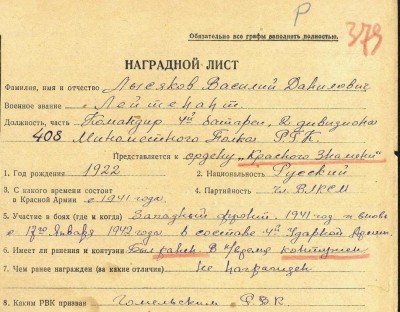 Р
379
Обязательно все графы заполнять полностью.
НАГРАДНОЙ ЛИСТ
Фамилия, имя и отчество Лысяков Василий Данилович
Военное звание Лейтенант
Должность, часть Командир 4й батареи, 2 дивизиона
408 Минометного Полка РГК
Представляется к ордену „Красного Знамени"
1. Год рождения 1922 2. Национальность Русский
3. С какого времени состоит
в Красной Армии с 1941 года. 4. Партийность Чл. ВЛКСМ
5. Участие в боях (где и когда) Западный фронт. 1941 год и вновь
с января 1942 года в составе 4й Ударной Армии.
6. Имеет ли ранения и контузии Был ранен. В время контужен
7. Чем ранее награжден (за какие отличия) Не награжден
8. Каким РВК призван Гомельским Р.В.К.